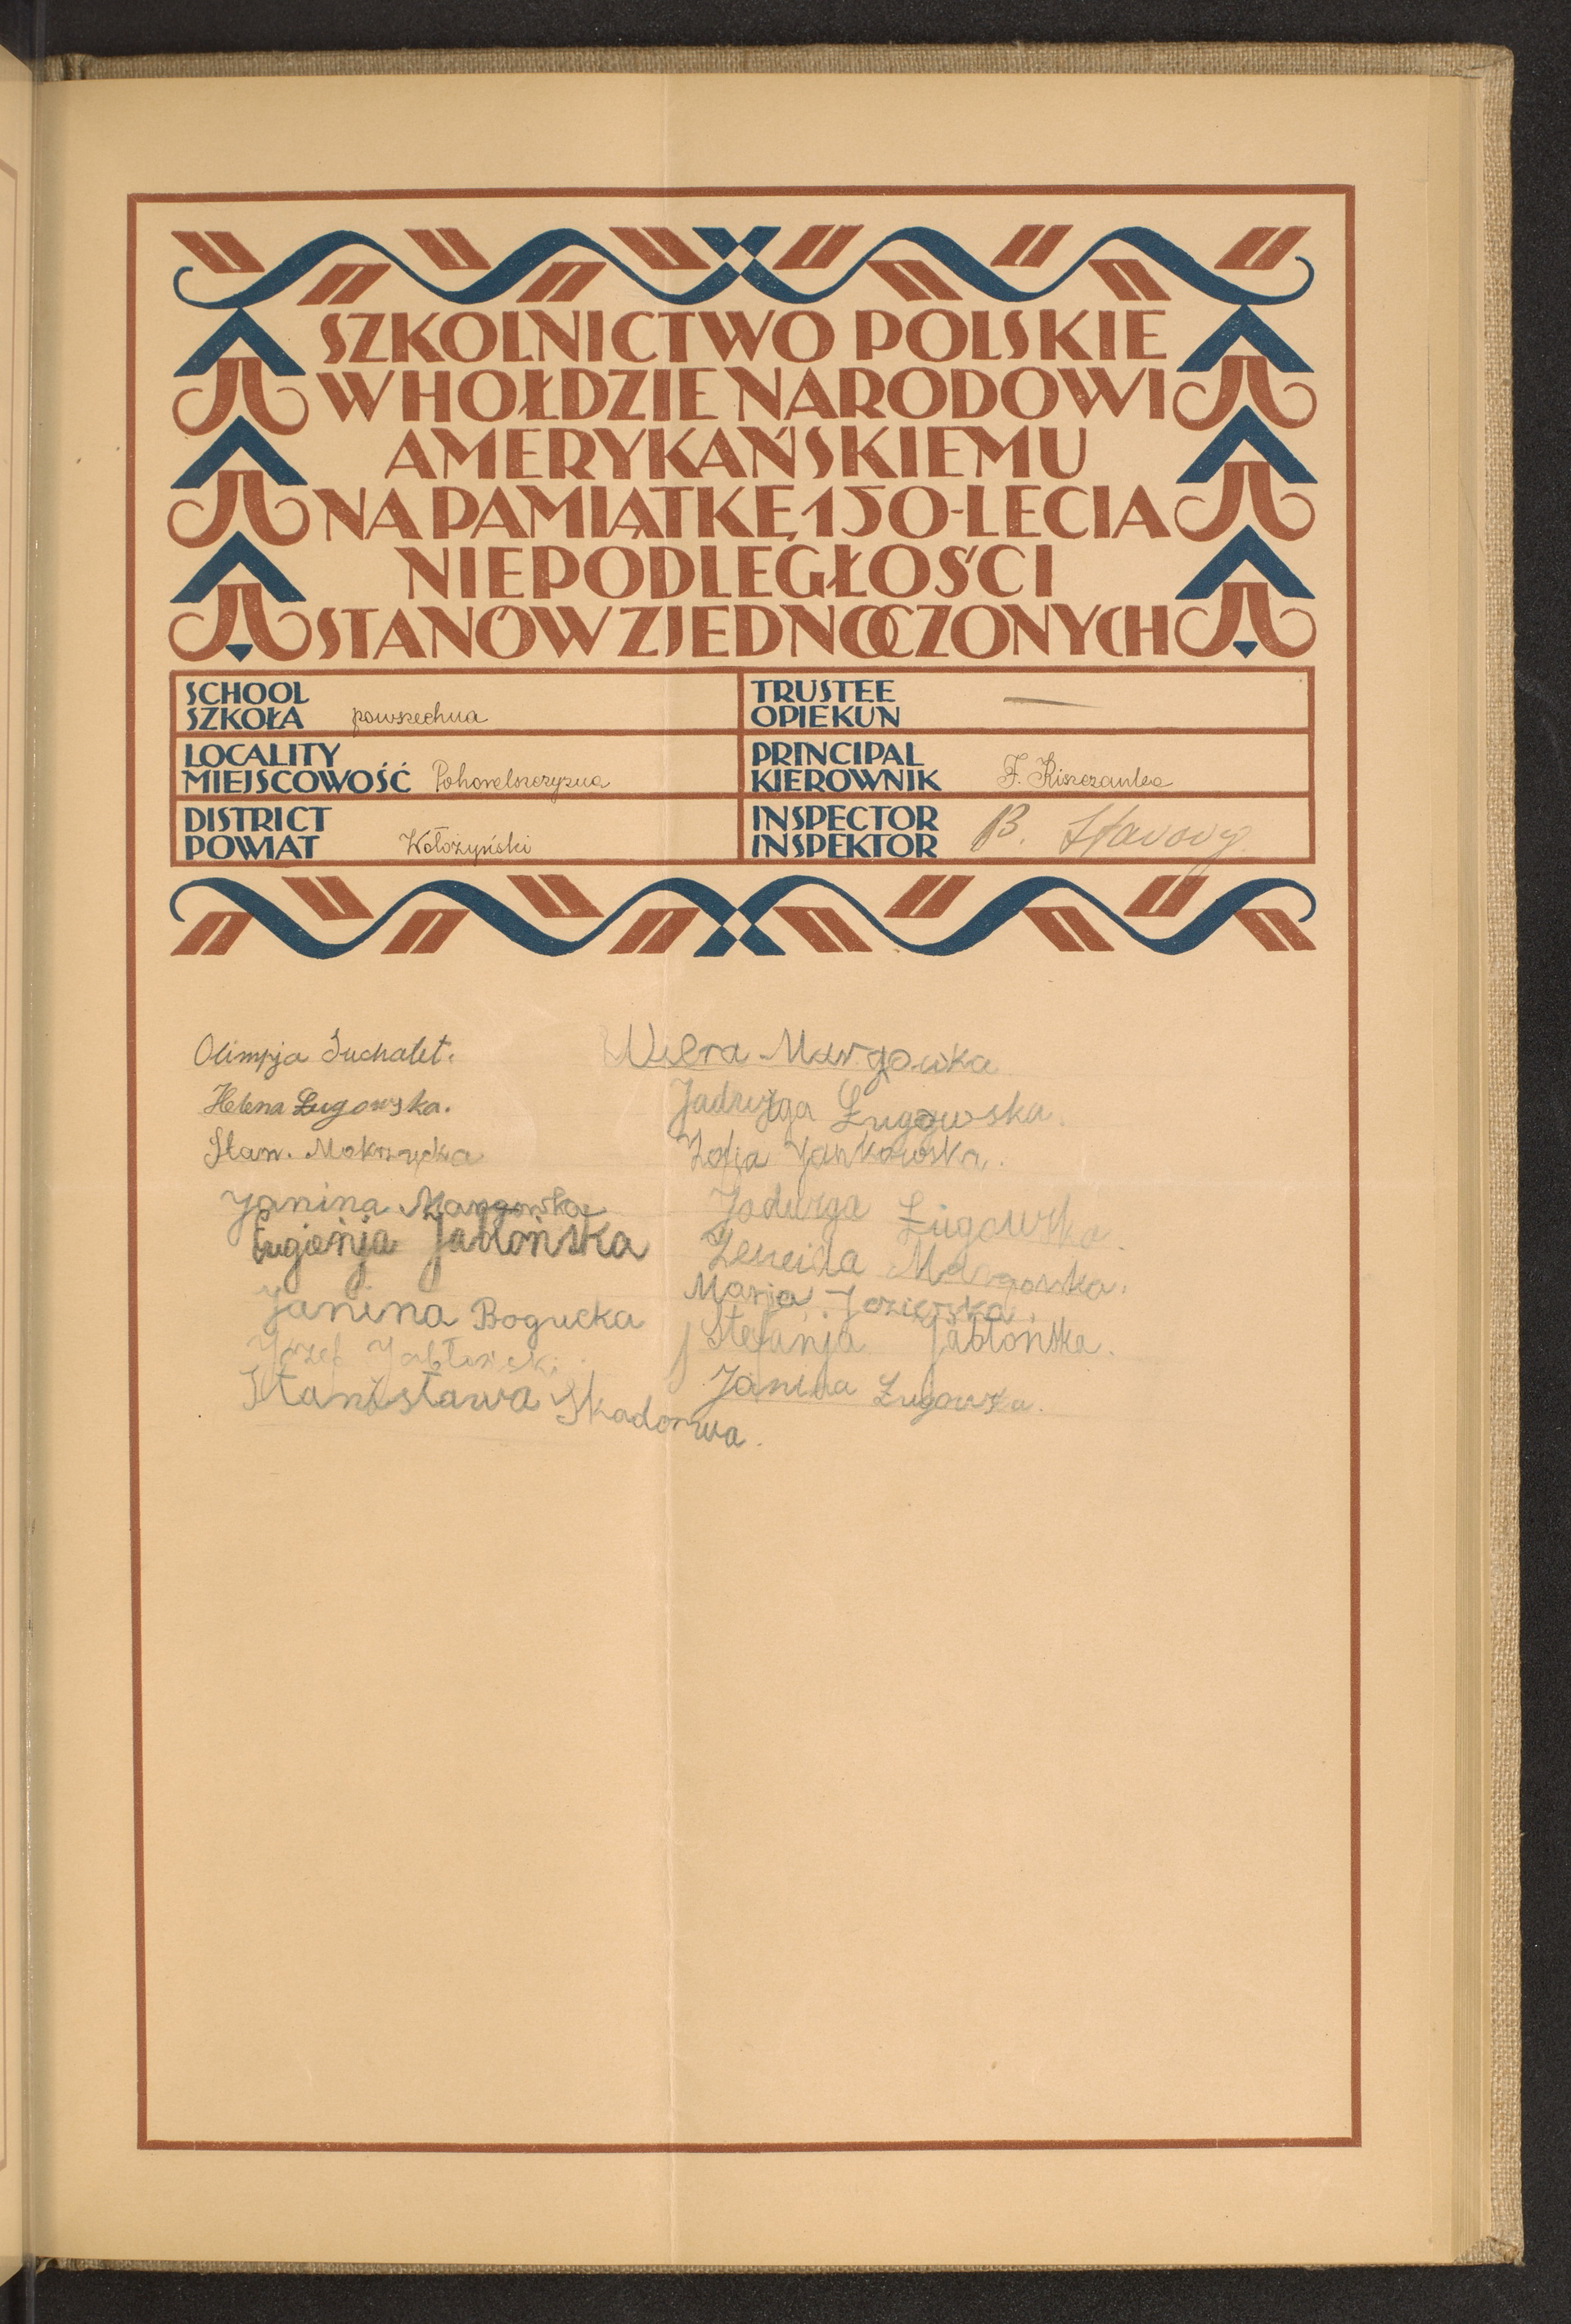 SZKOLNICTWO POLSKIE
W HOŁDZIE NARODOWI
AMERYKAŃSKIEMU
NA PAMIĄTKĘ 150-LECIA
NIEPODLEGŁOŚCI
STANÓW ZJEDNOCZONYCH
SCHOOL
SZKOŁA powszechna
TRUSTEE
OPIEKUN —
LOCALITY
MIEJSCOWOŚĆ
PRINCIPAL
KIEROWNIK F.
DISTRICT
POWIAT Wołożyński
INSPECTOR
INSPEKTOR B.
Olimpja Suchalet.
Helena Ługowska.
Staw. Mokrzycka
Janina Margowka
Eugienja Jabłońska
Janina Bogucka
Józef Jabłoński
Stanisława Skadorwa.
Wiera Margowka
Jadwyga Ługowska.
Zofja Jankowska.
Jadwiga Ługowska.
Zeneida Margowka.
Marja Jozierska.
Stefanja Jabłońska.
Janina Ługowska.